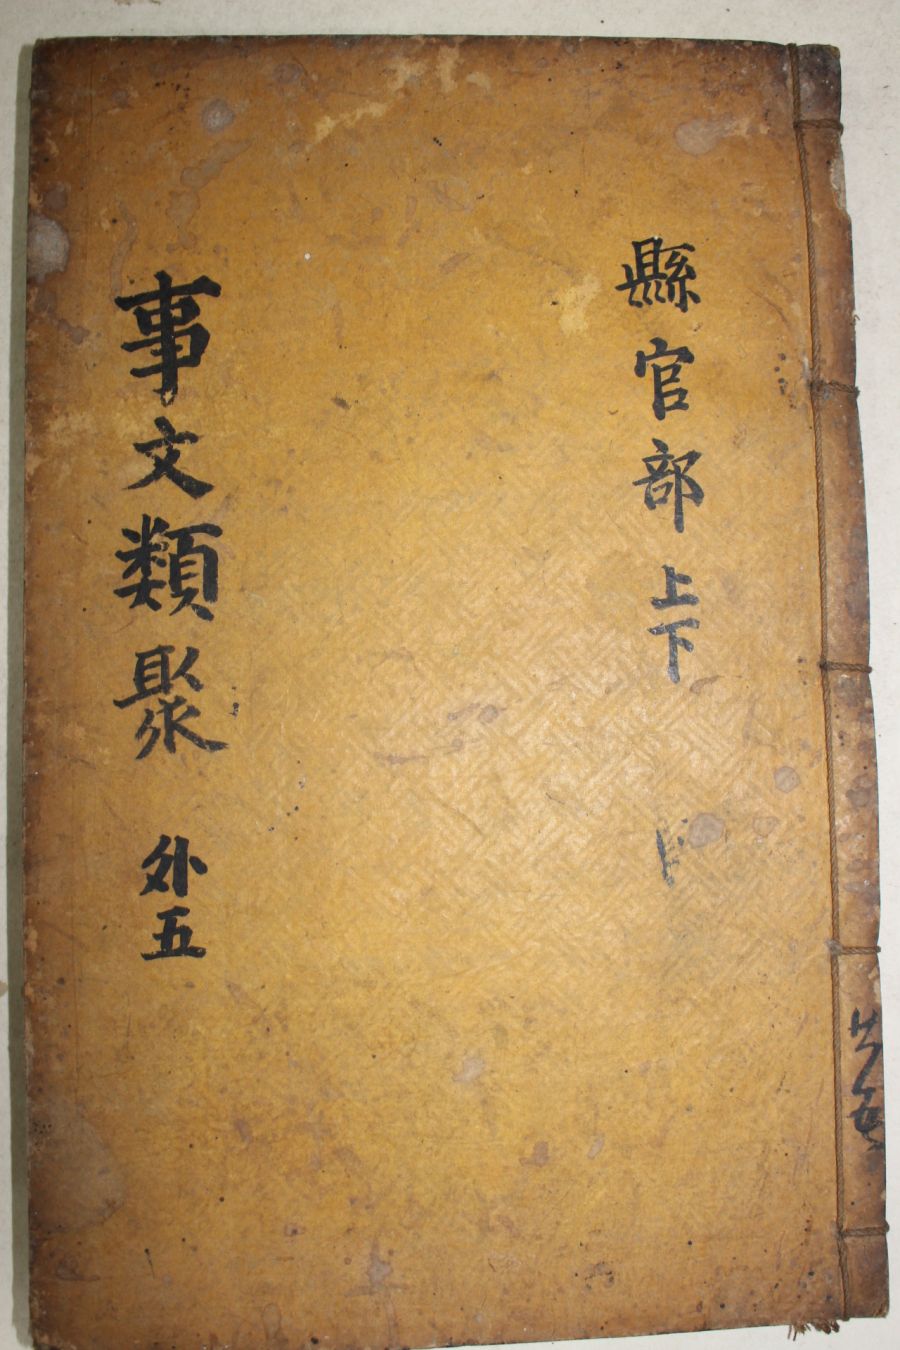 縣官部 上下
事文類聚 外五
共